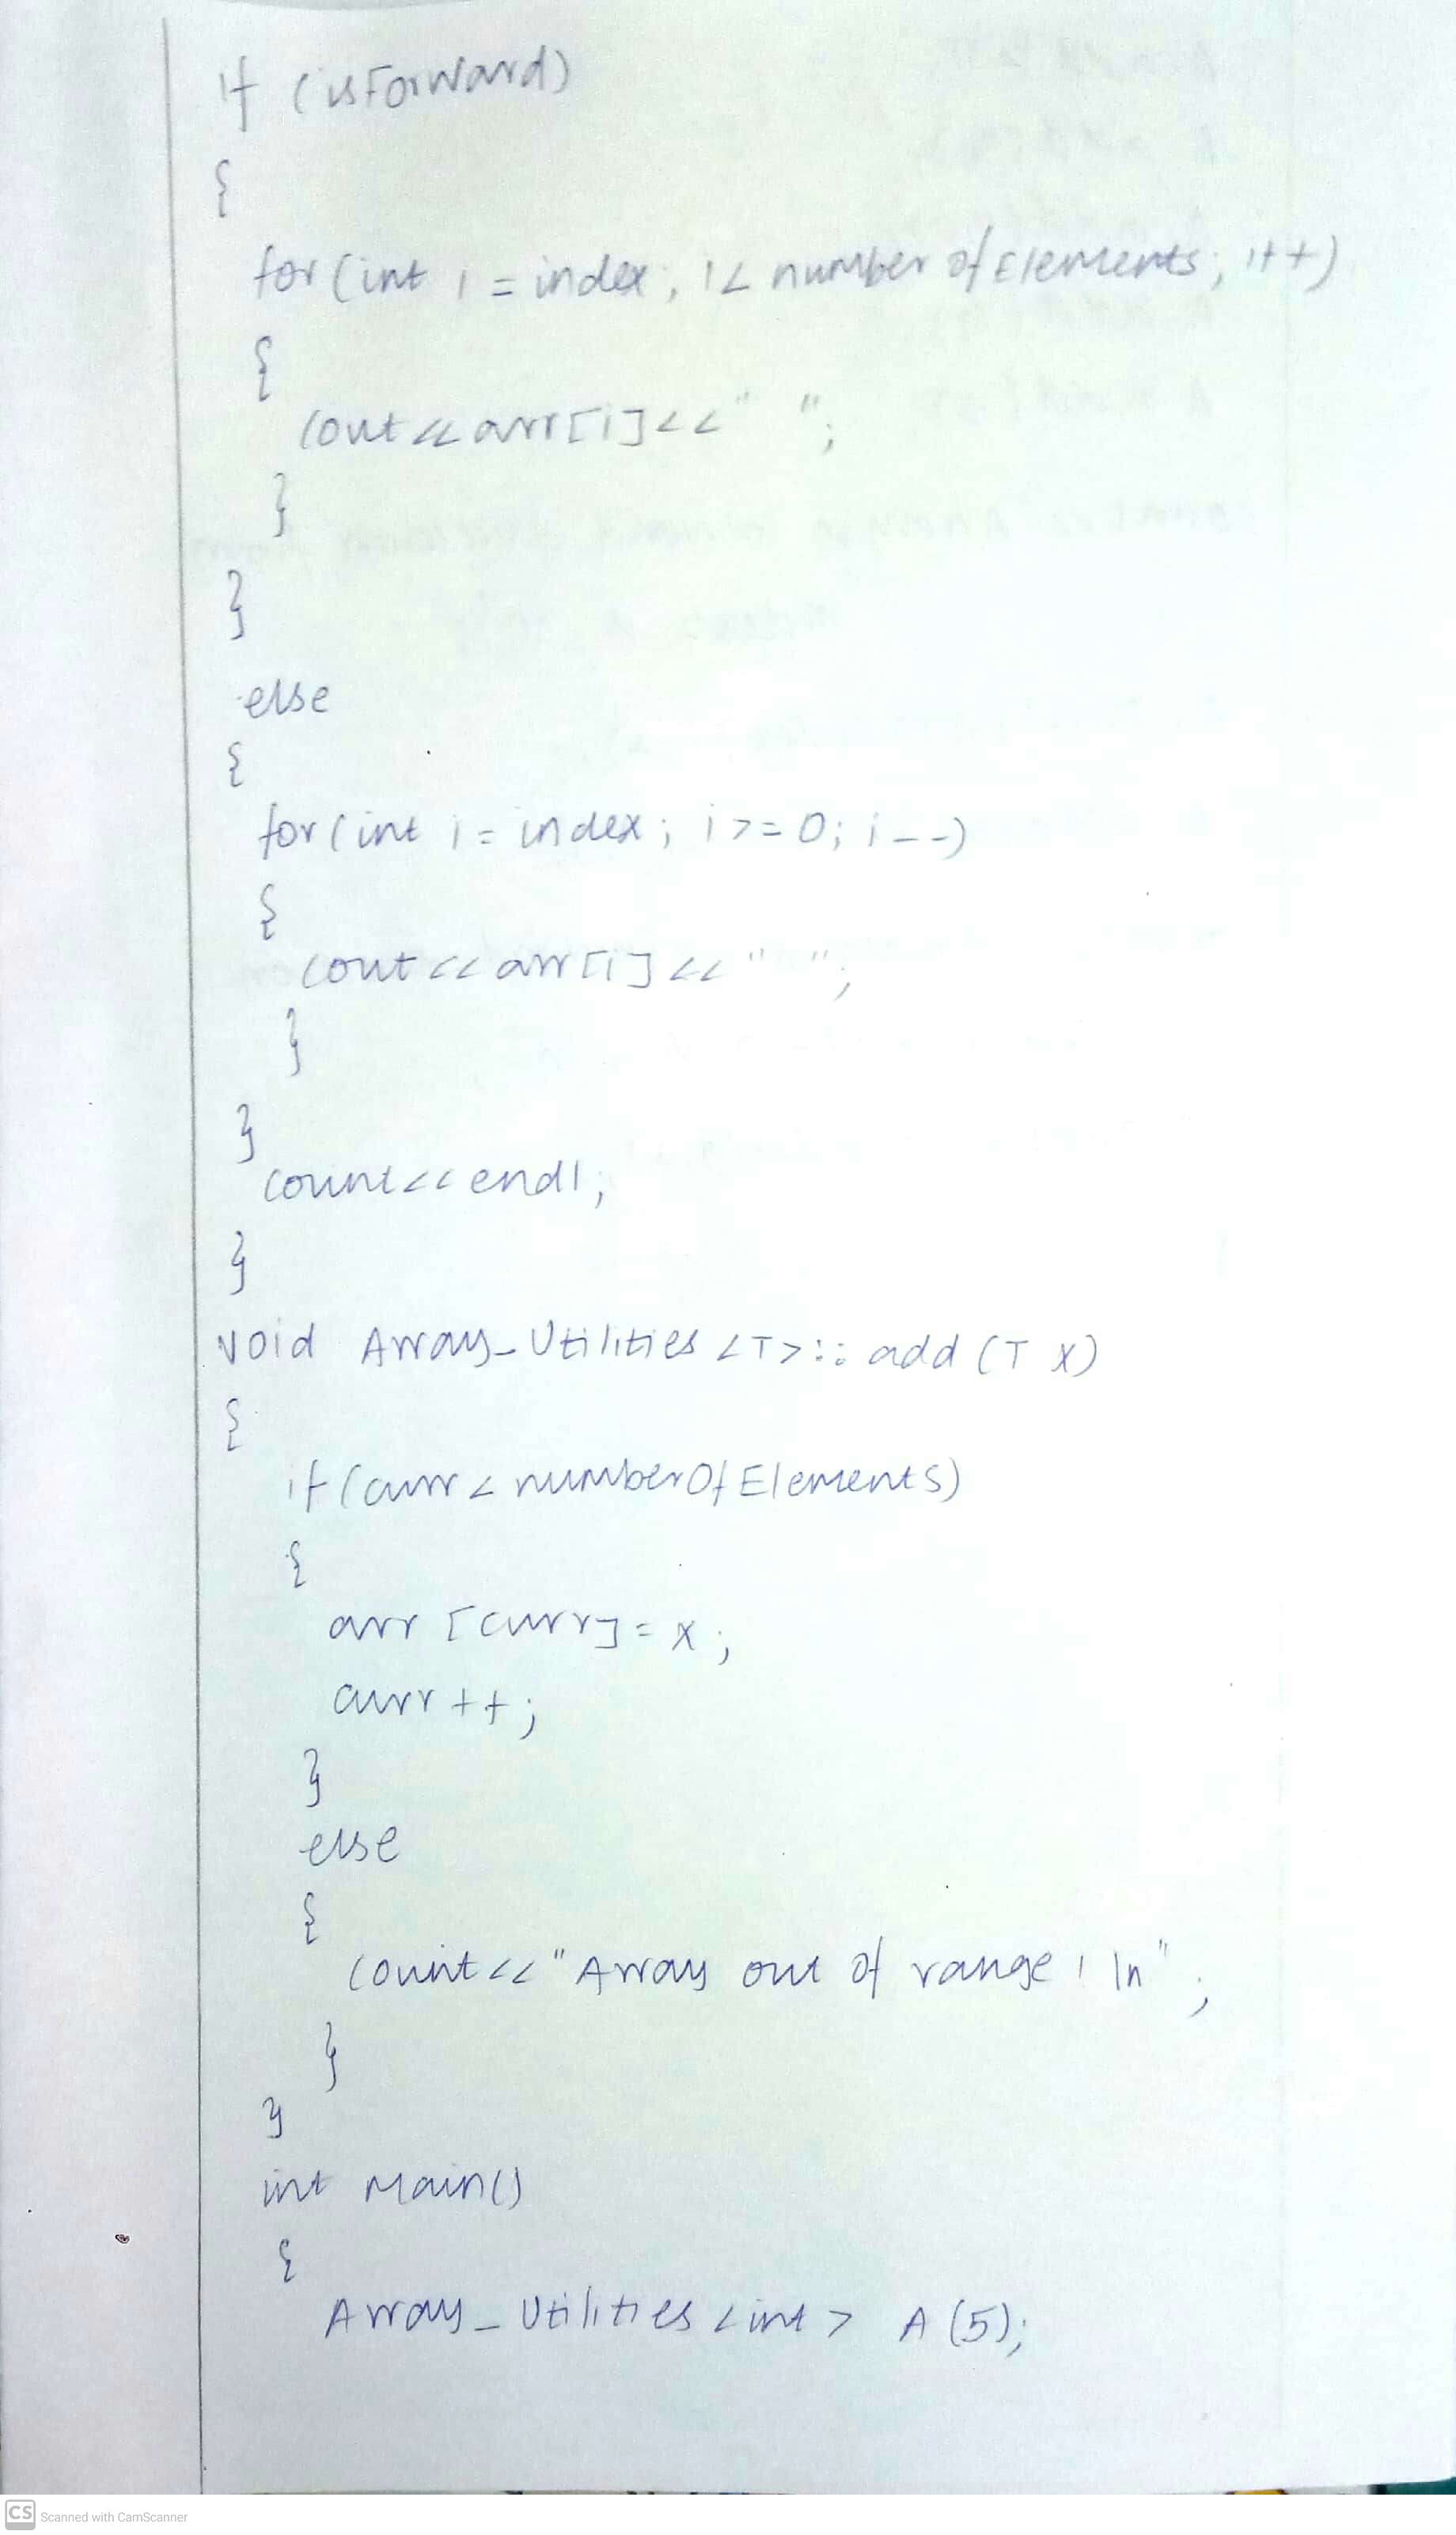 if (isForward)
{
for (int i = index; i< number of Elements; i++)
{
cout << arr[i]<<" ";
}
}
else
{
for (int i = index; i>=0; i--)
{
cout << arr[i] <<" ";
}
}
count<<endl;
}
void Array_Utilities <T>:: add (T x)
{
if (curr < numberOfElements)
{
arr [curr] = x;
curr ++;
}
else
{
count<<"Array out of range ! \n";
}
}
int main()
{
Array_Utilities <int> A (5);
CS Scanned with CamScanner